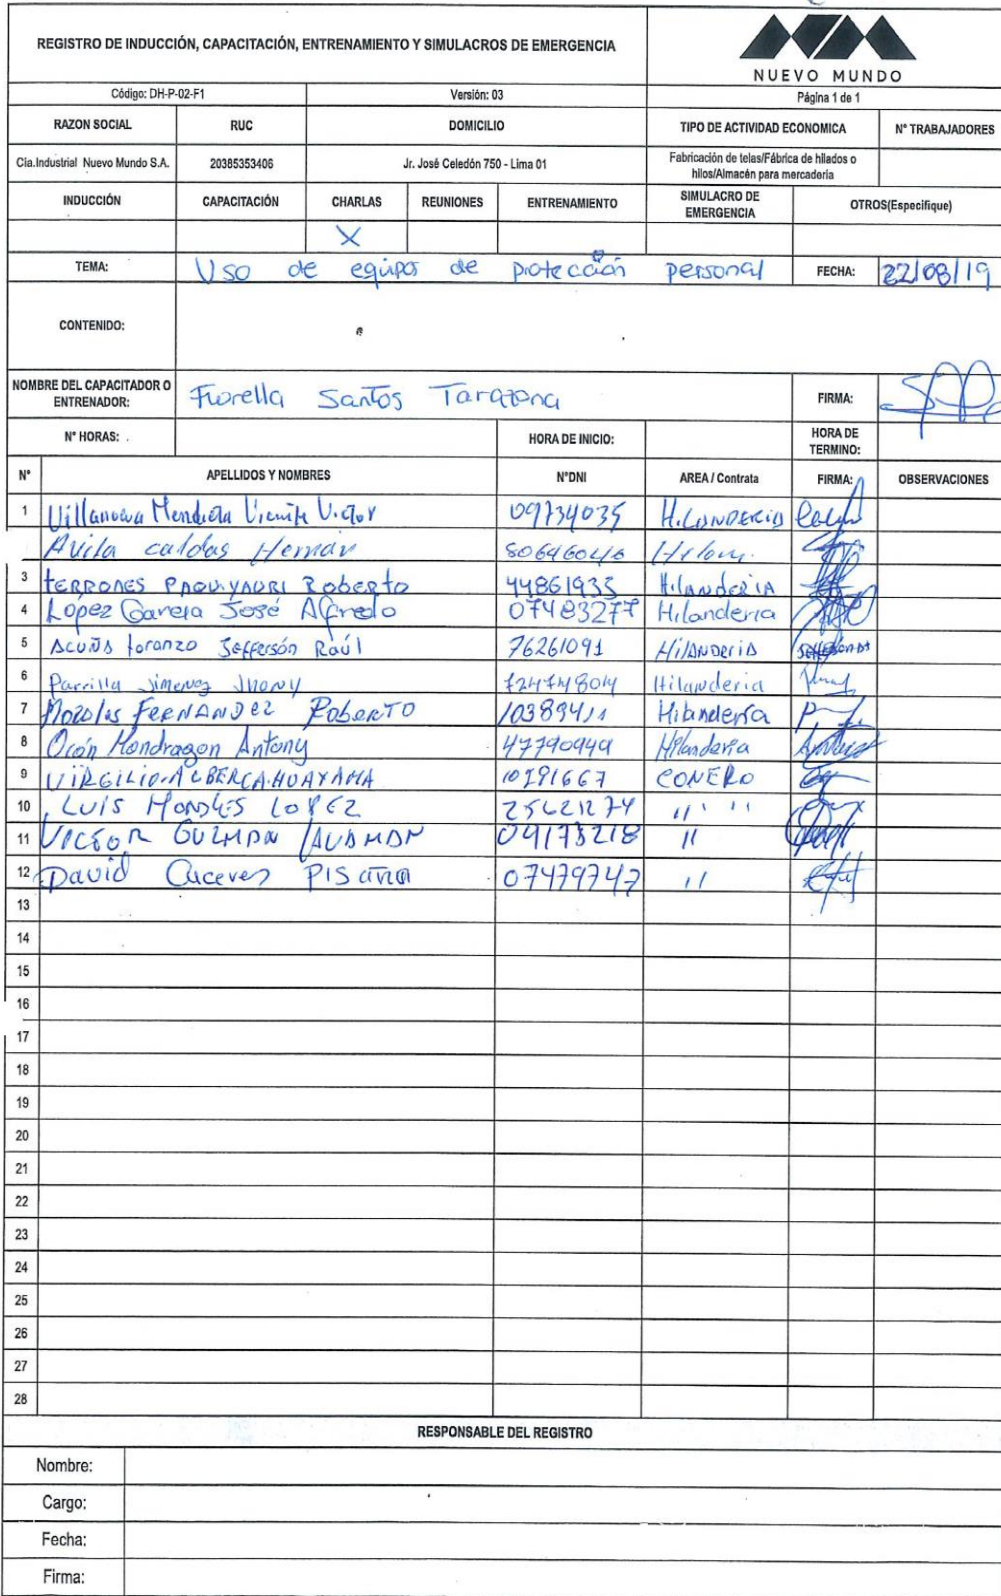 REGISTRO DE INDUCCIÓN, CAPACITACIÓN, ENTRENAMIENTO Y SIMULACROS DE EMERGENCIA
NUEVO MUNDO
Código: DH-P-02-F1 Versión: 03 Página 1 de 1
RAZON SOCIAL RUC DOMICILIO TIPO DE ACTIVIDAD ECONOMICA N° TRABAJADORES
Cia.Industrial Nuevo Mundo S.A. 20385353406 Jr. José Celedón 750 - Lima 01 Fabricación de telas/Fábrica de hilados o
hilos/Almacén para mercaderia
INDUCCIÓN CAPACITACIÓN CHARLAS REUNIONES ENTRENAMIENTO SIMULACRO DE
EMERGENCIA OTROS(Especifique)
X
TEMA: Uso de equipos de protección personal FECHA: 22/08/19
CONTENIDO:
NOMBRE DEL CAPACITADOR O
ENTRENADOR: Fiorella Santos Tarazona FIRMA:
N° HORAS: HORA DE INICIO: HORA DE
TERMINO:
N° APELLIDOS Y NOMBRES N°DNI AREA / Contrata FIRMA: OBSERVACIONES
1 Villanueva Mendieta Vicente Victor 09734035 HILANDERIA
Avila caldas Hernán 80646046
3 TERRONES PAQUIYAURI Roberto 44861935 HilandeRIA
4 López García José Alfredo 07483277 Hilanderia
5 Acuña Loranzo Jefferson Raúl 76261091 HilanDeriA
6 Parrilla Jimenez Jhony Hilanderia
7 FERNANDEZ RobeRTO Hilandería
8 Ocón Mondragon Antony 47790949 Hilanderia
9 VIRGILIO ALBERCA HUAYAMA 10191667 CONERO
10 LUIS LOPEZ 25621274 " "
11 VICTOR GUZMAN 09173218 "
12 David Caceres 07479747 "
13
14
15
16
17
18
19
20
21
22
23
24
25
26
27
28
RESPONSABLE DEL REGISTRO
Nombre:
Cargo:
Fecha:
Firma: